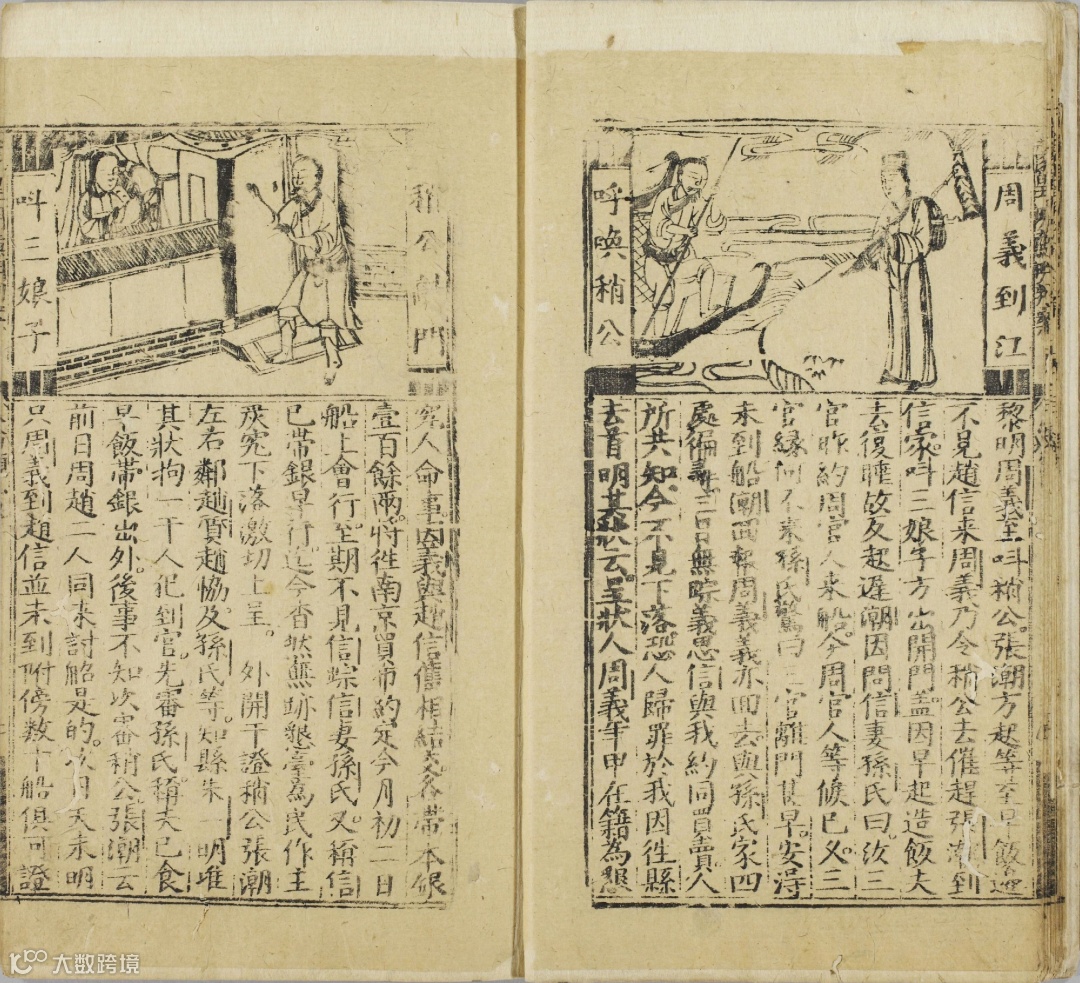 周義到江
呼喚稍公
黎明周義至叫稍公張潮方起等至早飯
不見趙信来周義乃令稍公去催趕張潮到
信家叫三娘子方出開門盖因早起造飯夫
去復睡故反起遲潮因問信妻孫氏曰汝三
官昨約周官人来船今周官人等候已久三
官縁何不来孫氏驚曰三官離門甚早安得
未到船潮回報周義義亦回去與孫氏家四
處徧三日無踪義思信與我約同買賣人
所共知今不見下落恐人歸罪於我因徃縣
去首明其狀云呈狀人周義年甲在籍為懇
稍公門
叫三娘子
究人命事因義與趙信舊相結交各帶本銀
壹百餘兩將徃南京買布約定今月初二日
船上會行至期不見信踪信妻孫氏又稱信
已帶銀早行迄今杳然無跡懇臺為民作主
究下落激切上呈 外開干證稍公張潮
左右鄰趙質趙恊及孫氏等知縣朱一明准
其狀拘一干人犯到官先審孫氏稱夫已食
早飯帶銀出外後事不知次審稍公張潮云
前日周趙二人同来討船是的次日天未明
只周義到趙信並未到附傍数十船俱可證
大数跨境